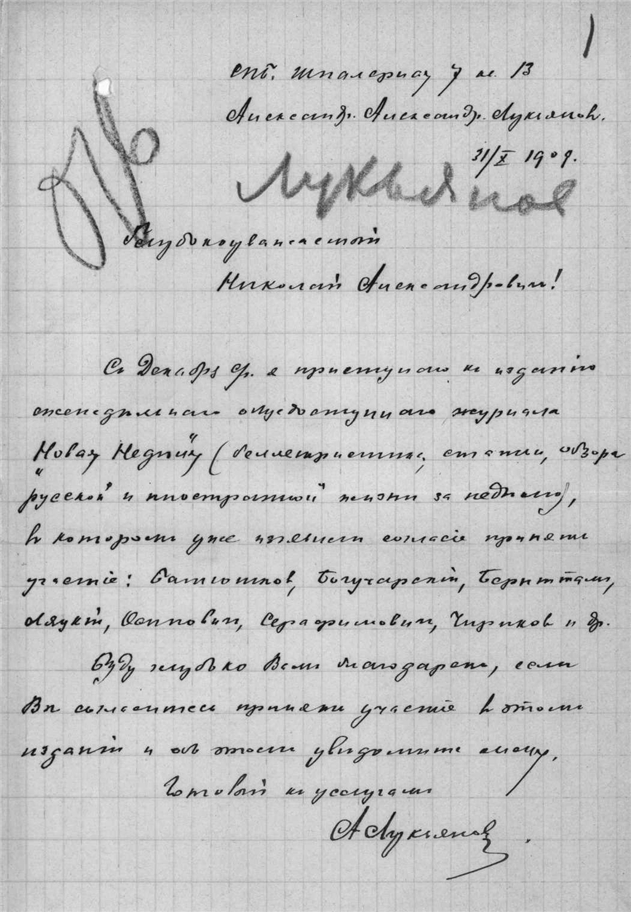 1
СПб. Шпалерная 7 кв. 13
Александр. Александр. Лукьянов.
31/X 1909.
Лукьянов
Глубокоуважаемый
Николай Александрович!
Съ Декабря с/г. я приступаю къ изданію
еженедѣльнаго общедоступнаго журнала
"Новая Недѣля" (беллетристика, статьи, обзоръ
русской и иностранной жизни за недѣлю),
въ которомъ уже изъявили согласіе принять
участіе: Батюшков, Богучарскій, Бернштамъ,
Ляцкій, Осипович, Серафимович, Чириков и др.
Буду глубоко Вамъ благодаренъ, если
Вы согласитесь принять участіе въ этомъ
изданіи и объ этомъ увѣдомите меня.
Готовый къ услугамъ
А Лукьянов.